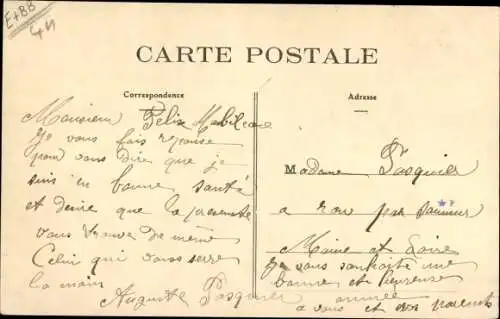 E+88
44
CARTE POSTALE
Correspondence
Adresse
Monsieur Félix Mabileau
Je vous fais reponse
pour vous dire que je
suis en bonne santé
et desire que la presente
vous trouve de même
Celui qui vous serre
la main
Auguste Pasquier
Madame Pasquier
a rou par Saumur
Maine et Loire
Je vous souhaite une
bonne et heureuse
année
a vous et vos parents